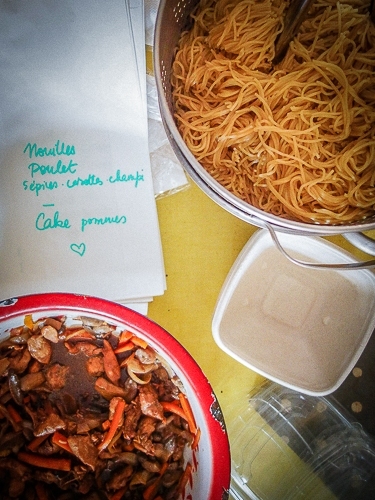 Nouilles
Poulet
5 épices - carottes - champi
—
Cake pommes
♡